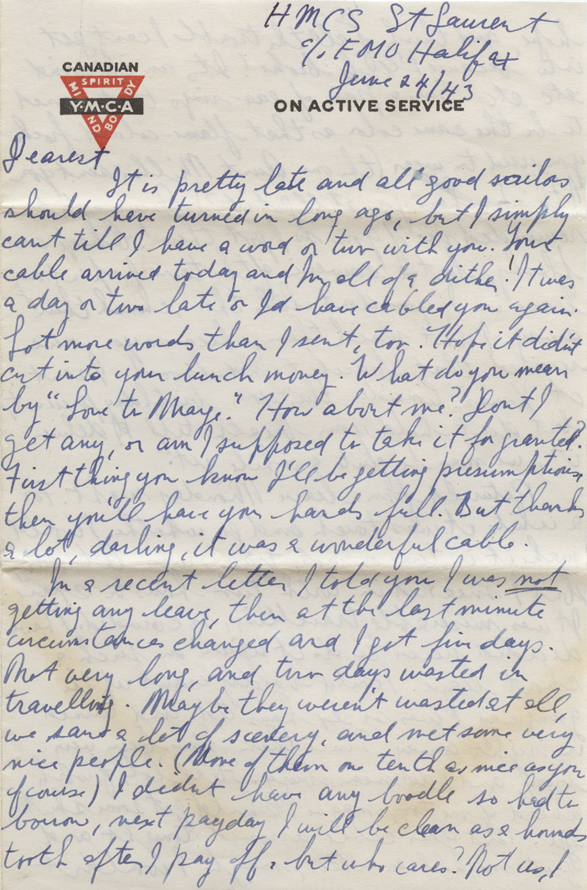 HMCS St Laurent
c/o FMO Halifax
June 24/43
CANADIAN
SPIRIT
MIND
BODY
Y·M·C·A
ON ACTIVE SERVICE
Dearest
It is pretty late and all good sailors
should have turned in long ago, but I simply
cant till I have a word or two with you. Your
cable arrived today and Im all of a dither! It was
a day or two late or Id have cabled you again.
Lot more words than I sent, too. Hope it didn't
cut into your lunch money. What do you mean
by "Love to Marge." How about me? Dont I
get any, or am I supposed to take it for granted?
First thing you know I'll be getting presumptious,
then you'll have your hands full. But thanks
a lot, darling, it was a wonderful cable.
In a recent letter I told you I was not
getting any leave, then at the last minute
circumstances changed and I got five days.
Not very long, and two days wasted in
travelling. Maybe they weren't wasted at all,
we saw a lot of scenery, and met some very
nice people. (None of them one tenth as nice as you
of course) I didn't have any boodle so had to
borrow, next payday I will be clean as a hounds
tooth after I pay off, but who cares? Not us, I